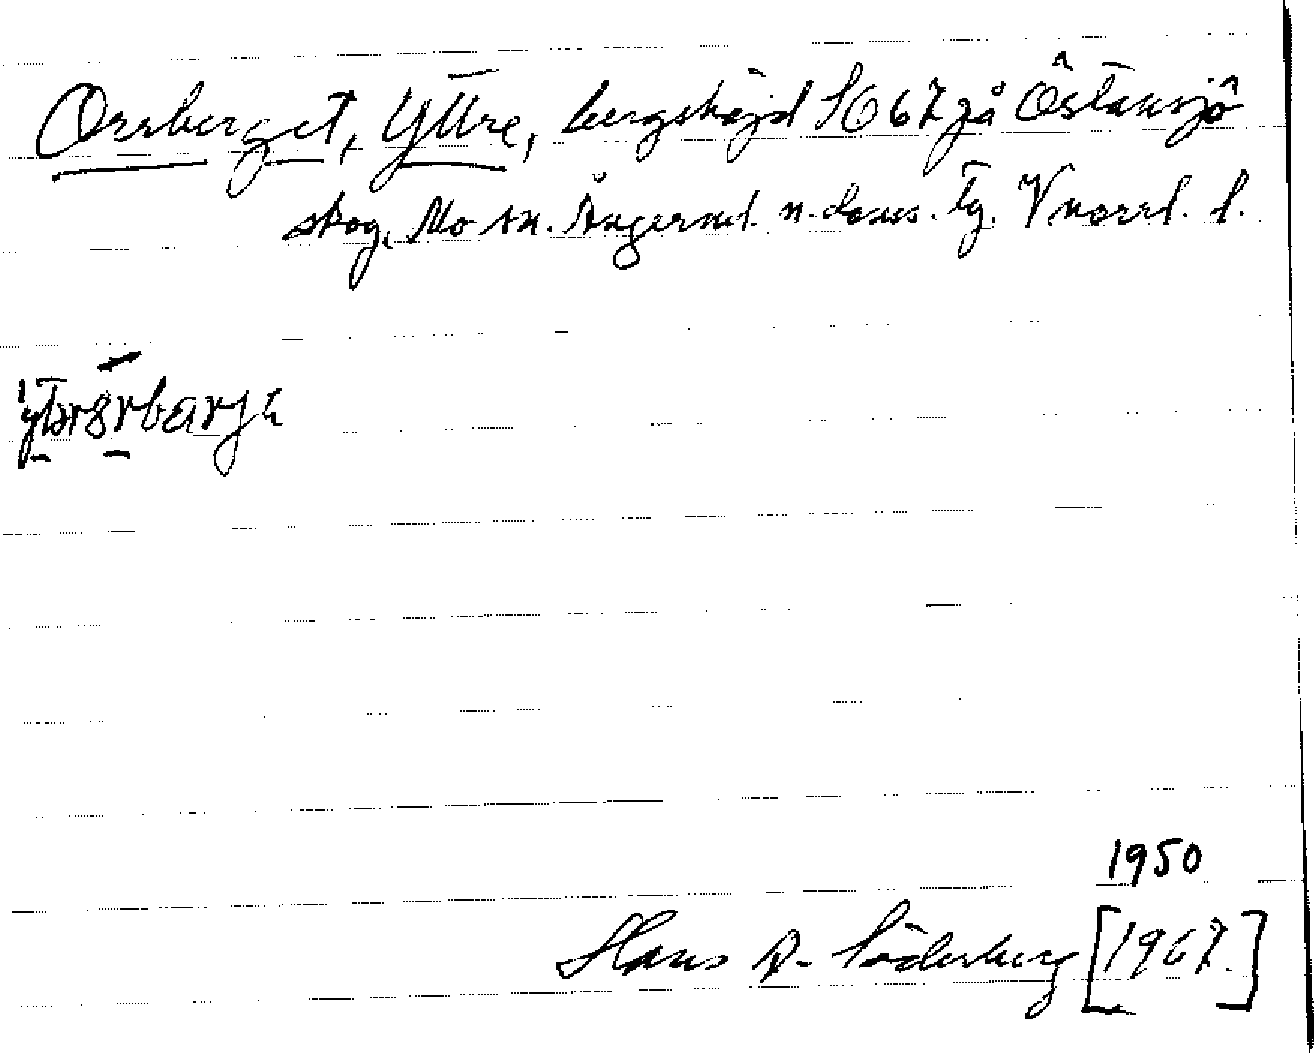 Orrberget, Yttre, bergshöjd SO 67 på Östansjö
skog, Mo sn. Ångerml. n. doms. tg. Vnorrl. l.
1950
Hans A. Söderberg [1967.]